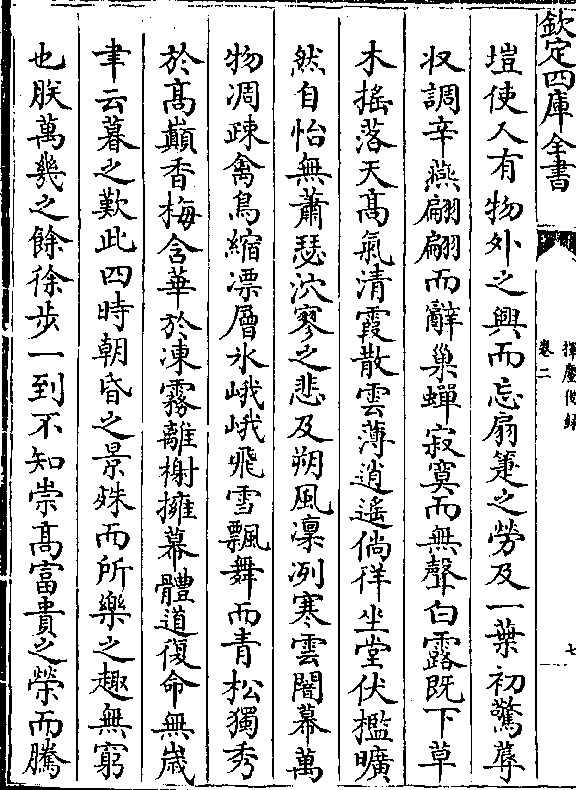 欽定四庫全書
揮麈後録
卷二
七
塏使人有物外之興而忘扇箑之勞及一葉初驚蓐
収調辛燕翩翩而辭巢蟬寂寞而無聲白露既下草
木揺落天髙氣清霞散雲薄逍遙徜徉坐堂伏檻曠
然自怡無蕭瑟沉寥之悲及朔風凛冽寒雲闇幕萬
物凋疎禽鳥縮凓層氷峨峨飛雪飄舞而青松獨秀
於髙巔香梅含華於凍霧離榭擁幕體道復命無歳
聿云暮之歎此四時朝昏之景殊而所樂之趣無窮
也朕萬㡬之餘徐步一到不知崇髙富貴之榮而騰